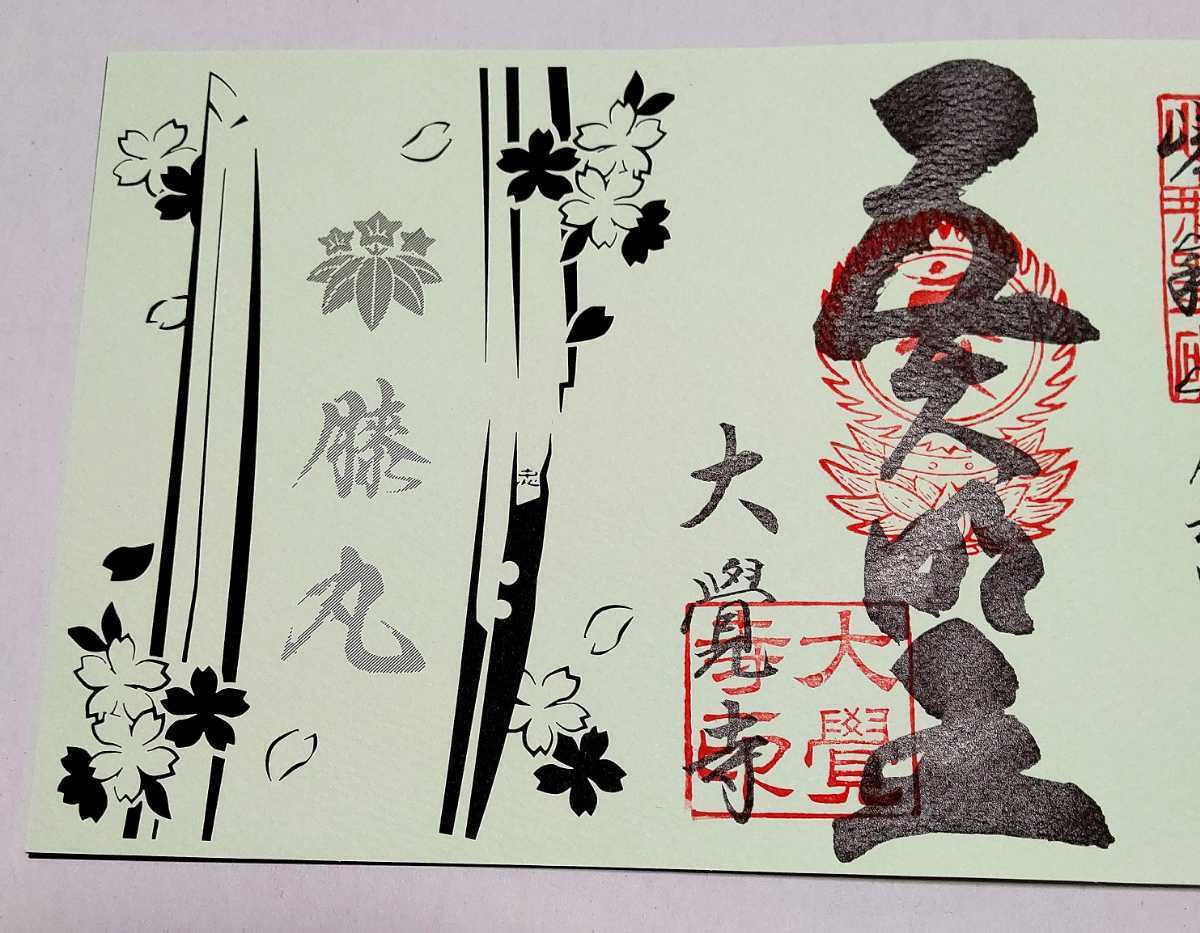 五大明王
大覺寺
大覺
寺
忠
膝丸